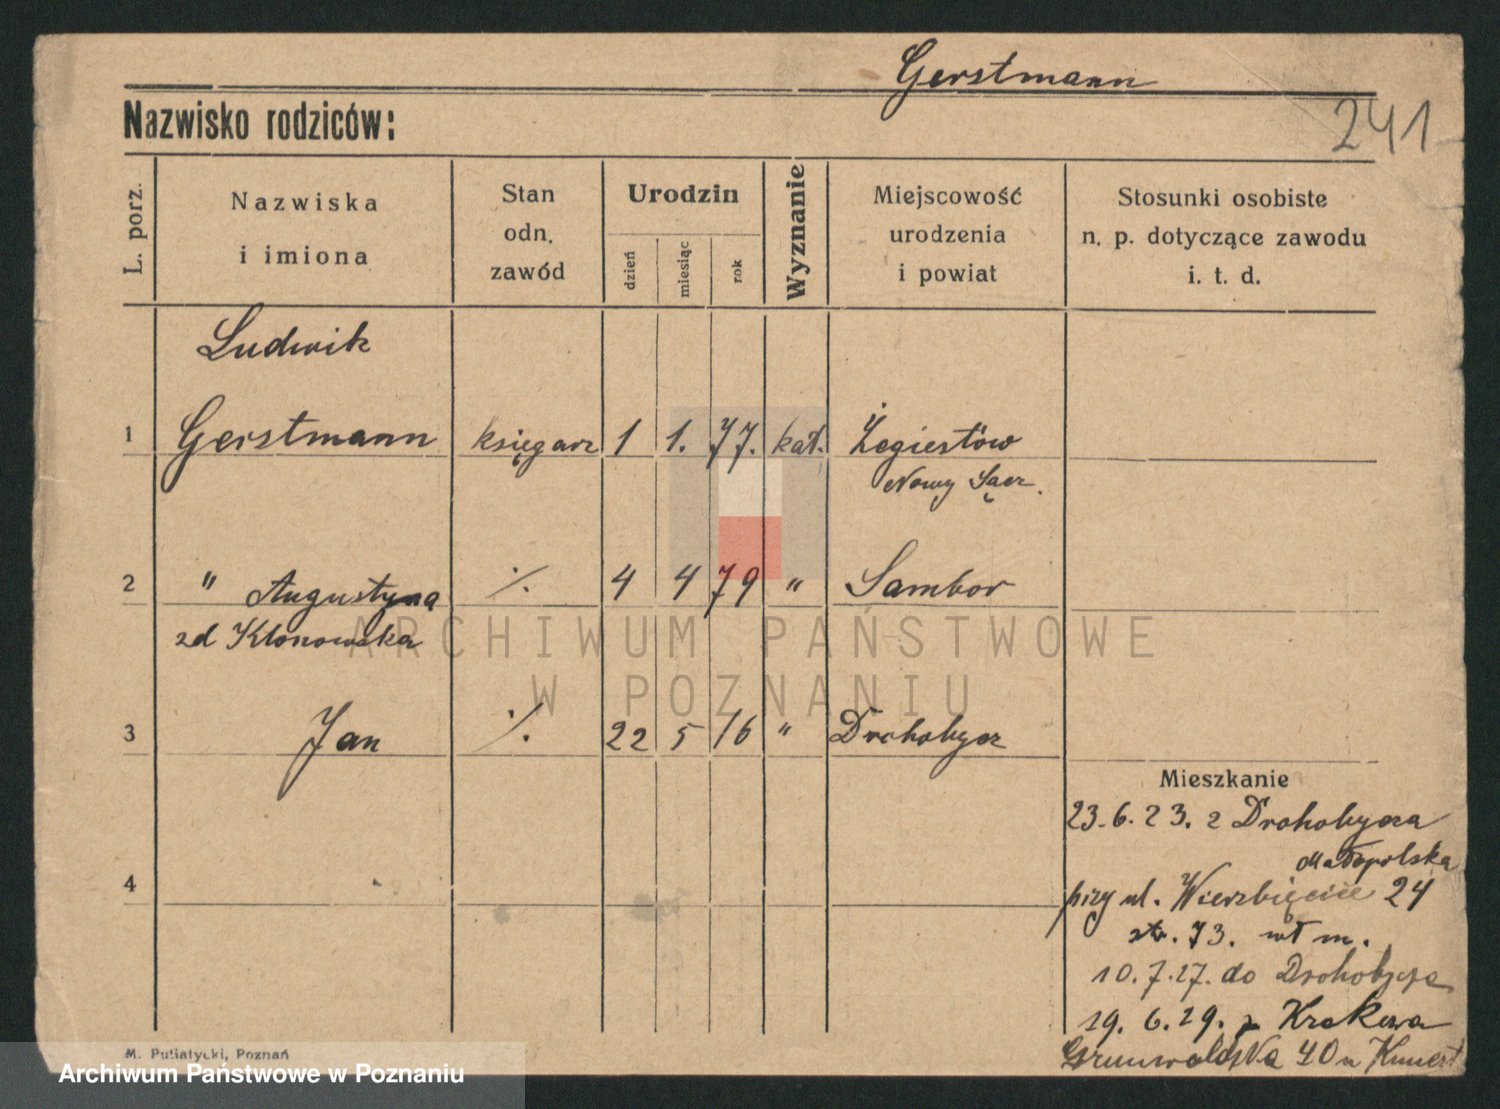 Gerstmann
Nazwisko rodziców:
241
L. porz.
Nazwiska
i imiona
Stan
odn.
zawód
Urodzin
dzień
miesiąc
rok
Wyznanie
Miejscowość
urodzenia
i powiat
Stosunki osobiste
n. p. dotyczące zawodu
i. t. d.
Ludwik
1 Gerstmann księgarz 1 1. 77. kat. Żegiestów
Nowy Sącz.
2 " Augustyna ·/. 4 4 79 " Sambor
zd Klonowska
3 Jan ·/. 22 5 16 " Drohobycz
4
Mieszkanie
23.6.23. z Drohobycza
Małopolska
przy ul. Wierzbięcice 24
str. 73. wł m.
10.7.27. do Drohobycza
19.6.29. z Krakowa
Grunwaldzka 40 u Kunert
M. Putiatycki, Poznań
ARCHIWUM PAŃSTWOWE
W POZNANIU
Archiwum Państwowe w Poznaniu